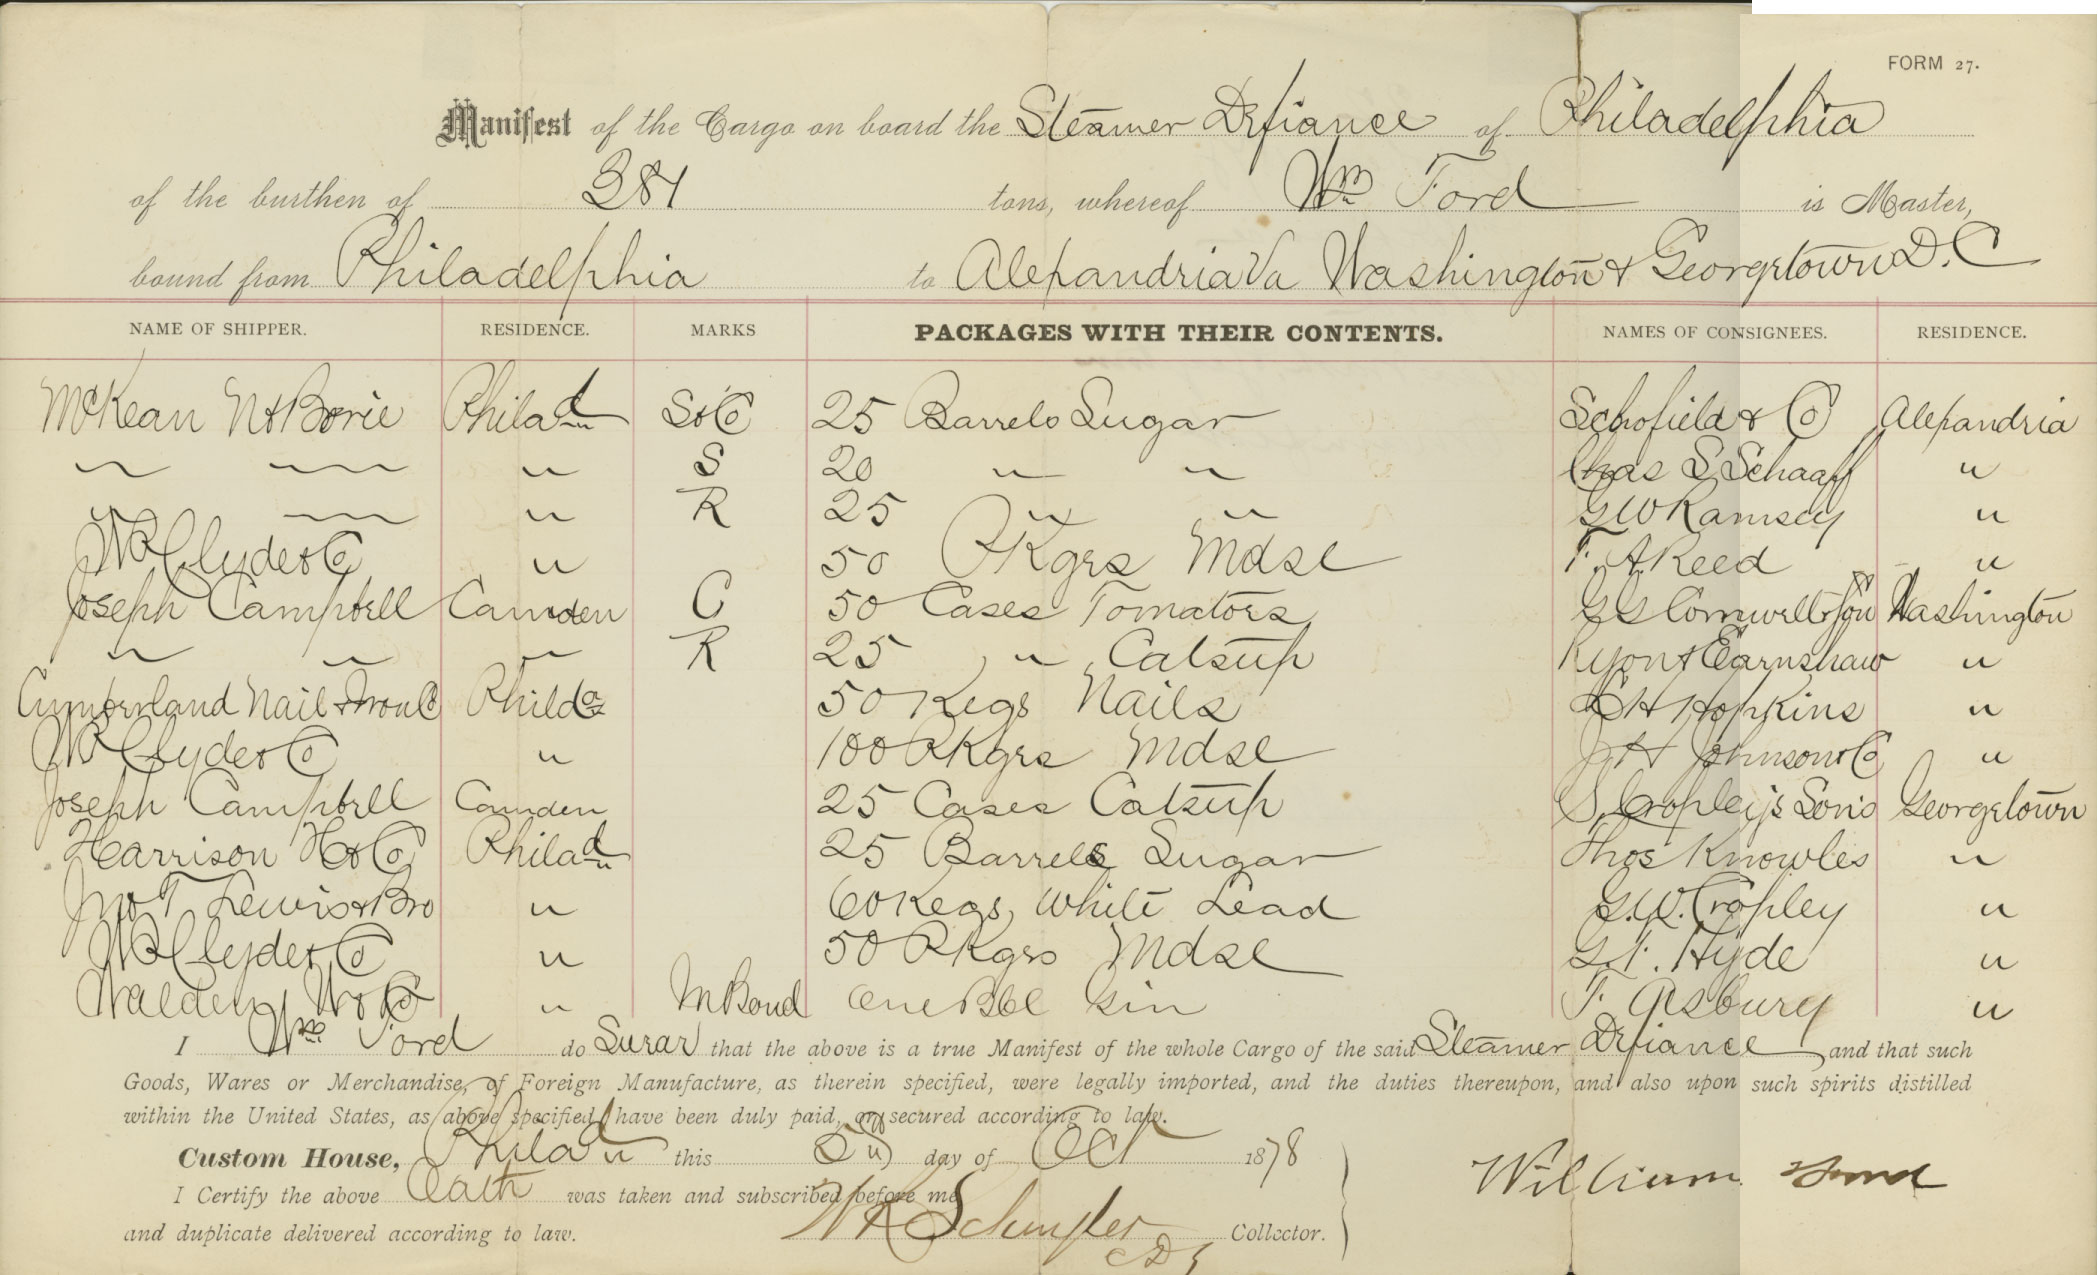 FORM 27.
Manifest of the Cargo on board the Steamer Defiance of Philadelphia
of the burthen of 381 tons, whereof Wm Ford is Master,
bound from Philadelphia to Alexandria Va Washington & Georgetown D.C
NAME OF SHIPPER. RESIDENCE. MARKS PACKAGES WITH THEIR CONTENTS. NAMES OF CONSIGNEES. RESIDENCE.
McKean N & Borie Philad S & Co 25 Barrels Sugar Schofield & Co Alexandria
" " " S 20 " " Chas S Schaaff "
" " " R 25 " " G W Ramsey "
WP Clyde & Co " 50 Pkgs Mdse F. A Reed "
Joseph Campbell Camden C 50 Cases Tomatoes G G Cornwell & Son Washington
" " " R 25 " Catsup Ryon & Earnshaw "
Cumberland Nail & Iron Co Philda 50 Kegs Nails Hopkins "
WP Clyde & Co " 100 Pkgs Mdse J H Johnson & Co "
Joseph Campbell Camden 25 Cases Catsup S. Cropley's Sons Georgetown
Harrison H & Co Philad 25 Barrels Sugar Thos Knowles "
Jno T Lewis & Bro " 60 Kegs White Lead G. W. Cropley "
WP Clyde & Co " 50 Pkgs Mdse G. F. Hyde "
Walden W & Co " M Bond One Bbl Gin F. Asbury "
I Wm Ford do Swear that the above is a true Manifest of the whole Cargo of the said Steamer Defiance and that such
Goods, Wares or Merchandise, of Foreign Manufacture, as therein specified, were legally imported, and the duties thereupon, and also upon such spirits distilled
within the United States, as above specified, have been duly paid, or secured according to law.
Custom House, Philad this day of Oct 1878
William Ford
I Certify the above Oath was taken and subscribed before me
and duplicate delivered according to law. Collector.